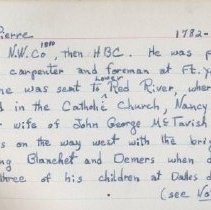 Pierre 1782-
N.W.Co 1800, then HBC. He was p
carpenter and foreman at Ft. V
ne was sent to Lower Red River, wher
d in the Catholic Church, Nancy
wife of John George McTavish
s on the way west with the brig
ng Blanchet and Demers when d
three of his children at Dalles d
(see Vo